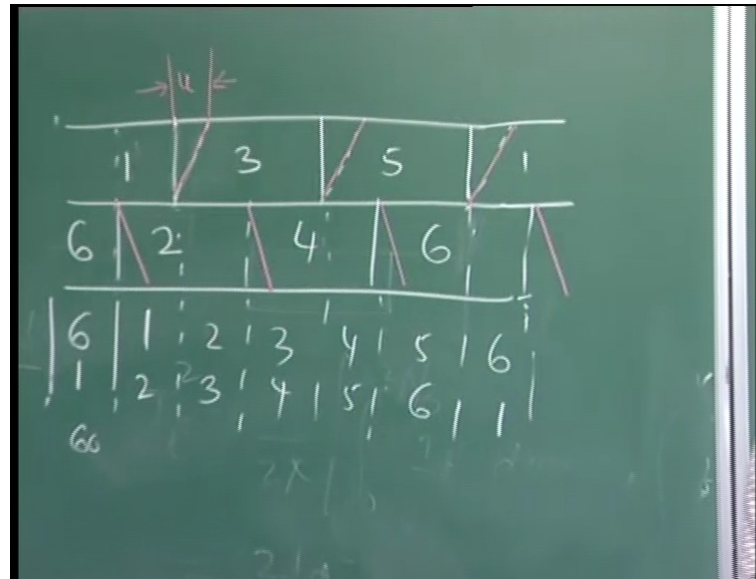 u
1 3 5 1
6 2 4 6
6 1 2 3 4 5 6
1 2 3 4 5 6 1
60